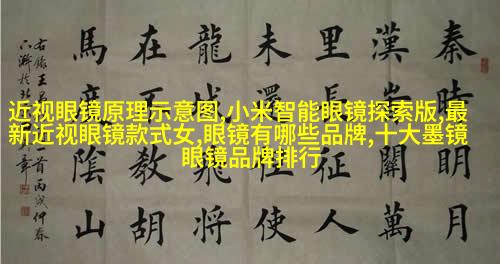 近视眼镜原理示意图,小米智能眼镜探索版,最
新近视眼镜款式女,眼镜有哪些品牌,十大墨镜
眼镜品牌排行
秦時明月
漢關萬
里長征人
未還但使
龍城飛將
在不教胡
馬度陰山
右錄王
首丙戌仲春